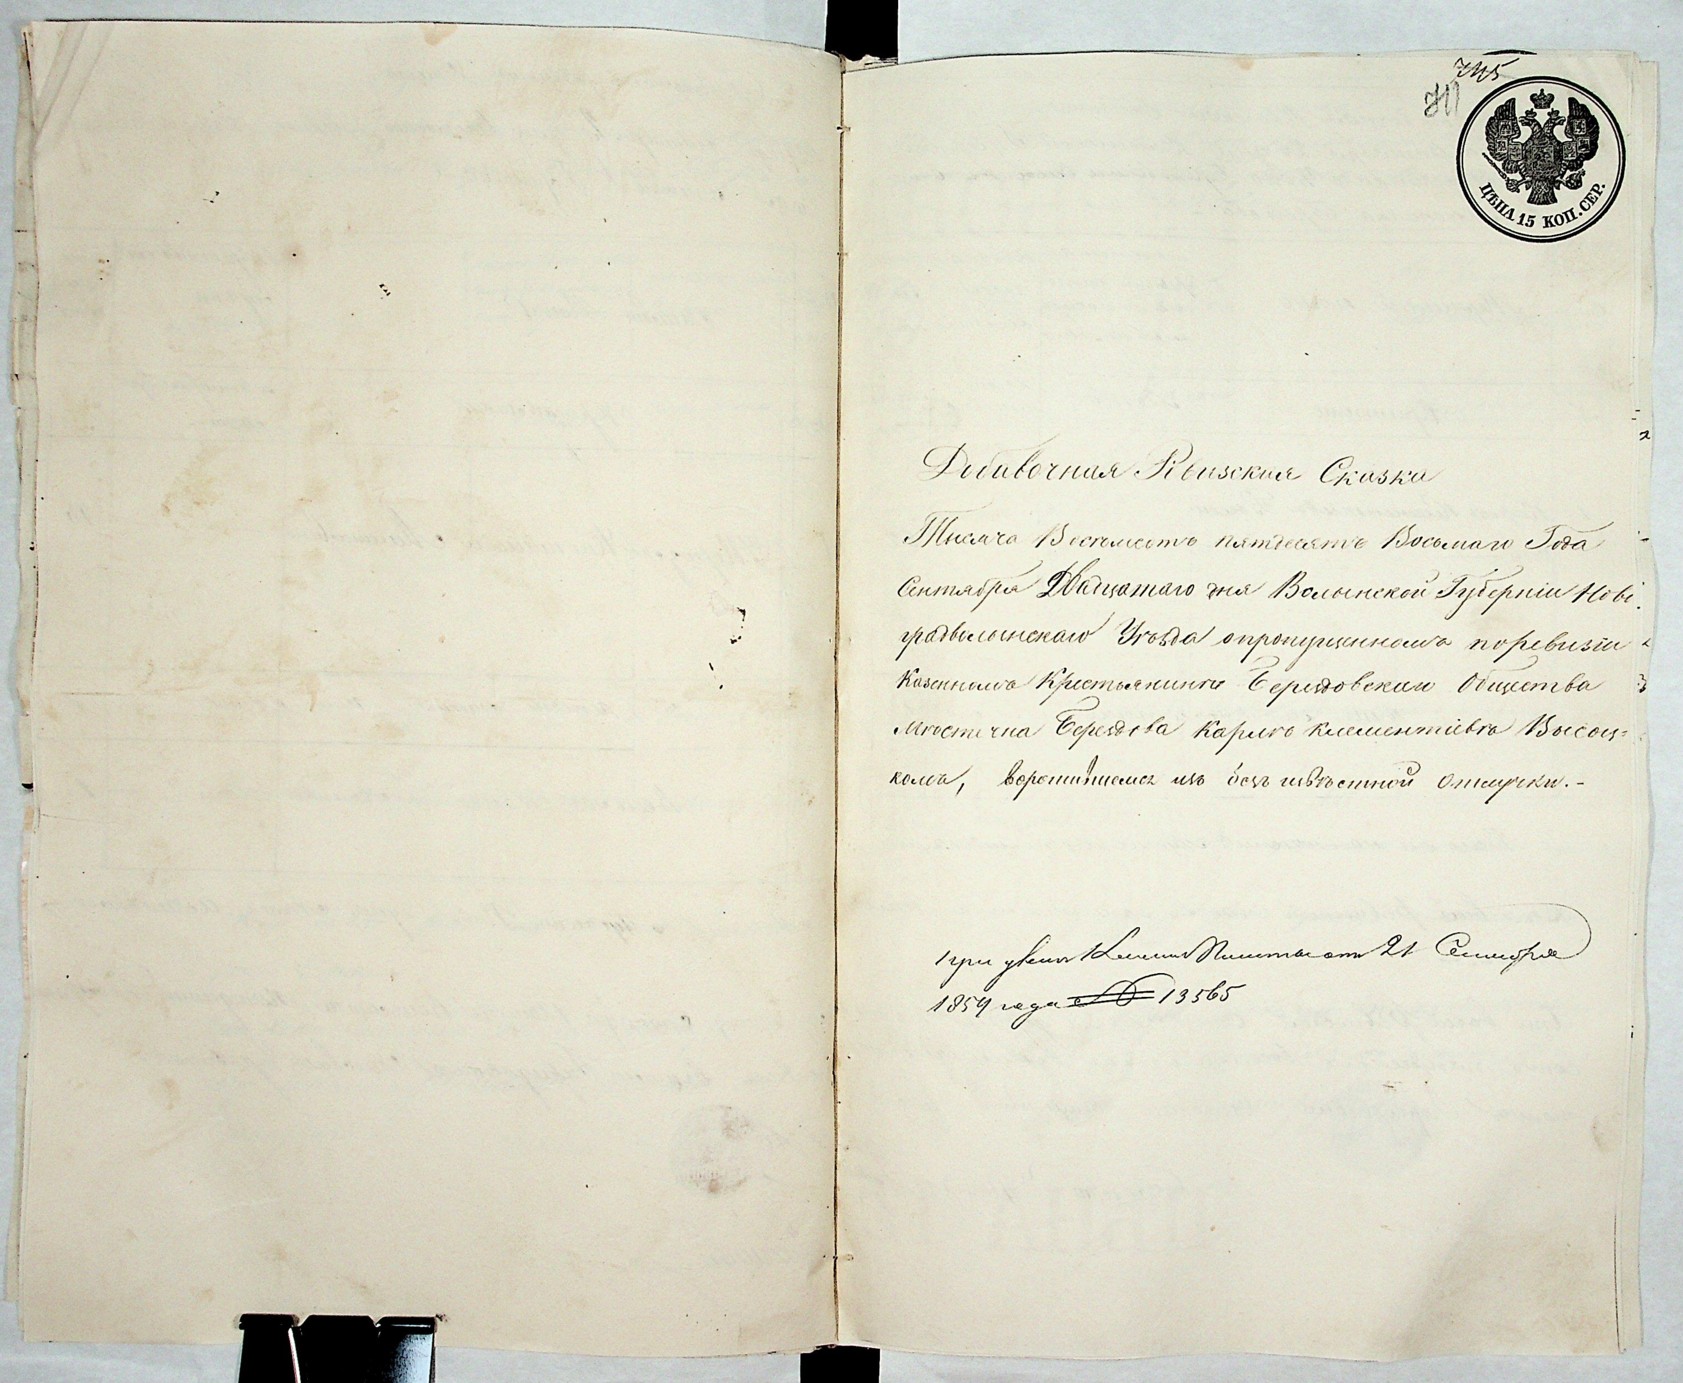 745
ЦѢНА 15 КОП. СЕР.
Добавочная Ревизская Сказка
Тысяча Восемьсотъ пятдесятъ Восьмаго Года
Сентября Двадцатаго дня Волынской Губерніи Нові-
градволынскаго Уѣзда опропущенномъ поревизіи
Казенномъ Крестьянинѣ Берездовскаго Общества
Мѣстечка Берездова Карлѣ Клементіевѣ Высоц=
комъ, воротившемся изъ безъ извѣстной отлучки.-
При указѣ Казенной Палаты отъ 21 Сентября
1859 года № 13565